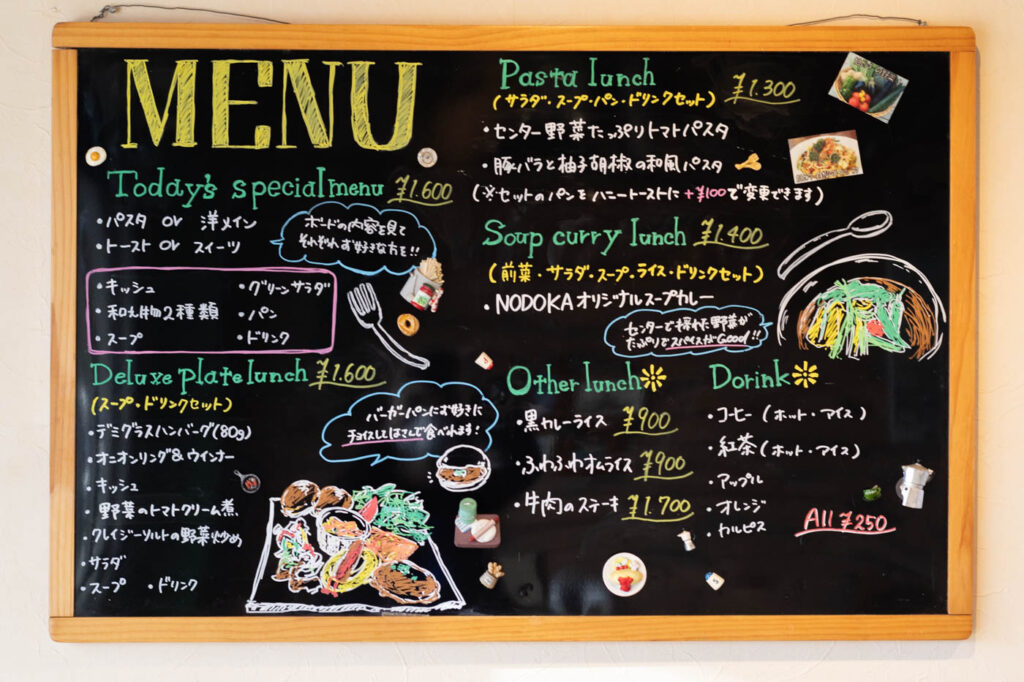 MENU
Today's special menu ¥1.600
・パスタ or 洋メイン
・トースト or スイーツ
ボードの内容を見て
それぞれお好きな方を!!
・キッシュ
・和え物2種類
・スープ
・グリーンサラダ
・パン
・ドリンク
Deluxe plate lunch ¥1.600
(スープ・ドリンクセット)
・デミグラスハンバーグ(80g)
・オニオンリング&ウインナー
・キッシュ
・野菜のトマトクリーム煮
・クレイジーソルトの野菜炒め
・サラダ
・スープ ・ドリンク
バーガーパンにお好きに
チョイスしてはさんで食べれます!
Pasta lunch ¥1.300
(サラダ・スープ・パン・ドリンクセット)
・センター野菜たっぷりトマトパスタ
・豚バラと柚子胡椒の和風パスタ
(※セットのパンをハニートーストに+¥100で変更できます)
Soup curry lunch ¥1.400
(前菜・サラダ・スープ・ライス・ドリンクセット)
・NODOKAオリジナルスープカレー
センターで採れた野菜が
たっぷりでスパイスがGood!!
Other lunch
・黒カレーライス ¥900
・ふわふわオムライス ¥900
・牛肉のステーキ ¥1.700
Dorink
・コーヒー(ホット・アイス)
・紅茶(ホット・アイス)
・アップル
・オレンジ
・カルピス
All ¥250